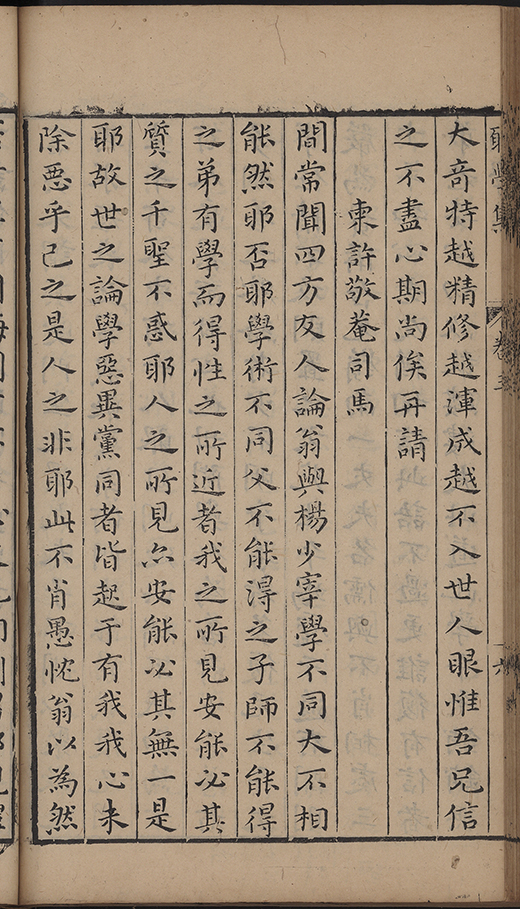 大奇特越精修越渾成越不入世人眼惟吾兄信
之不盡心期尚俟再請
柬許敬菴司馬
間常聞四方友人論翁與楊少宰學不同大不相
能然耶否耶學術不同父不能得之子師不能得
之弟有學而得性之所近者我之所見安能必其
質之千聖不惑耶人之所見亦安能必其無一是
耶故世之論學惡異黨同者皆起于有我我心未
除惡乎己之是人之非耶此不肖愚忱翁以為然